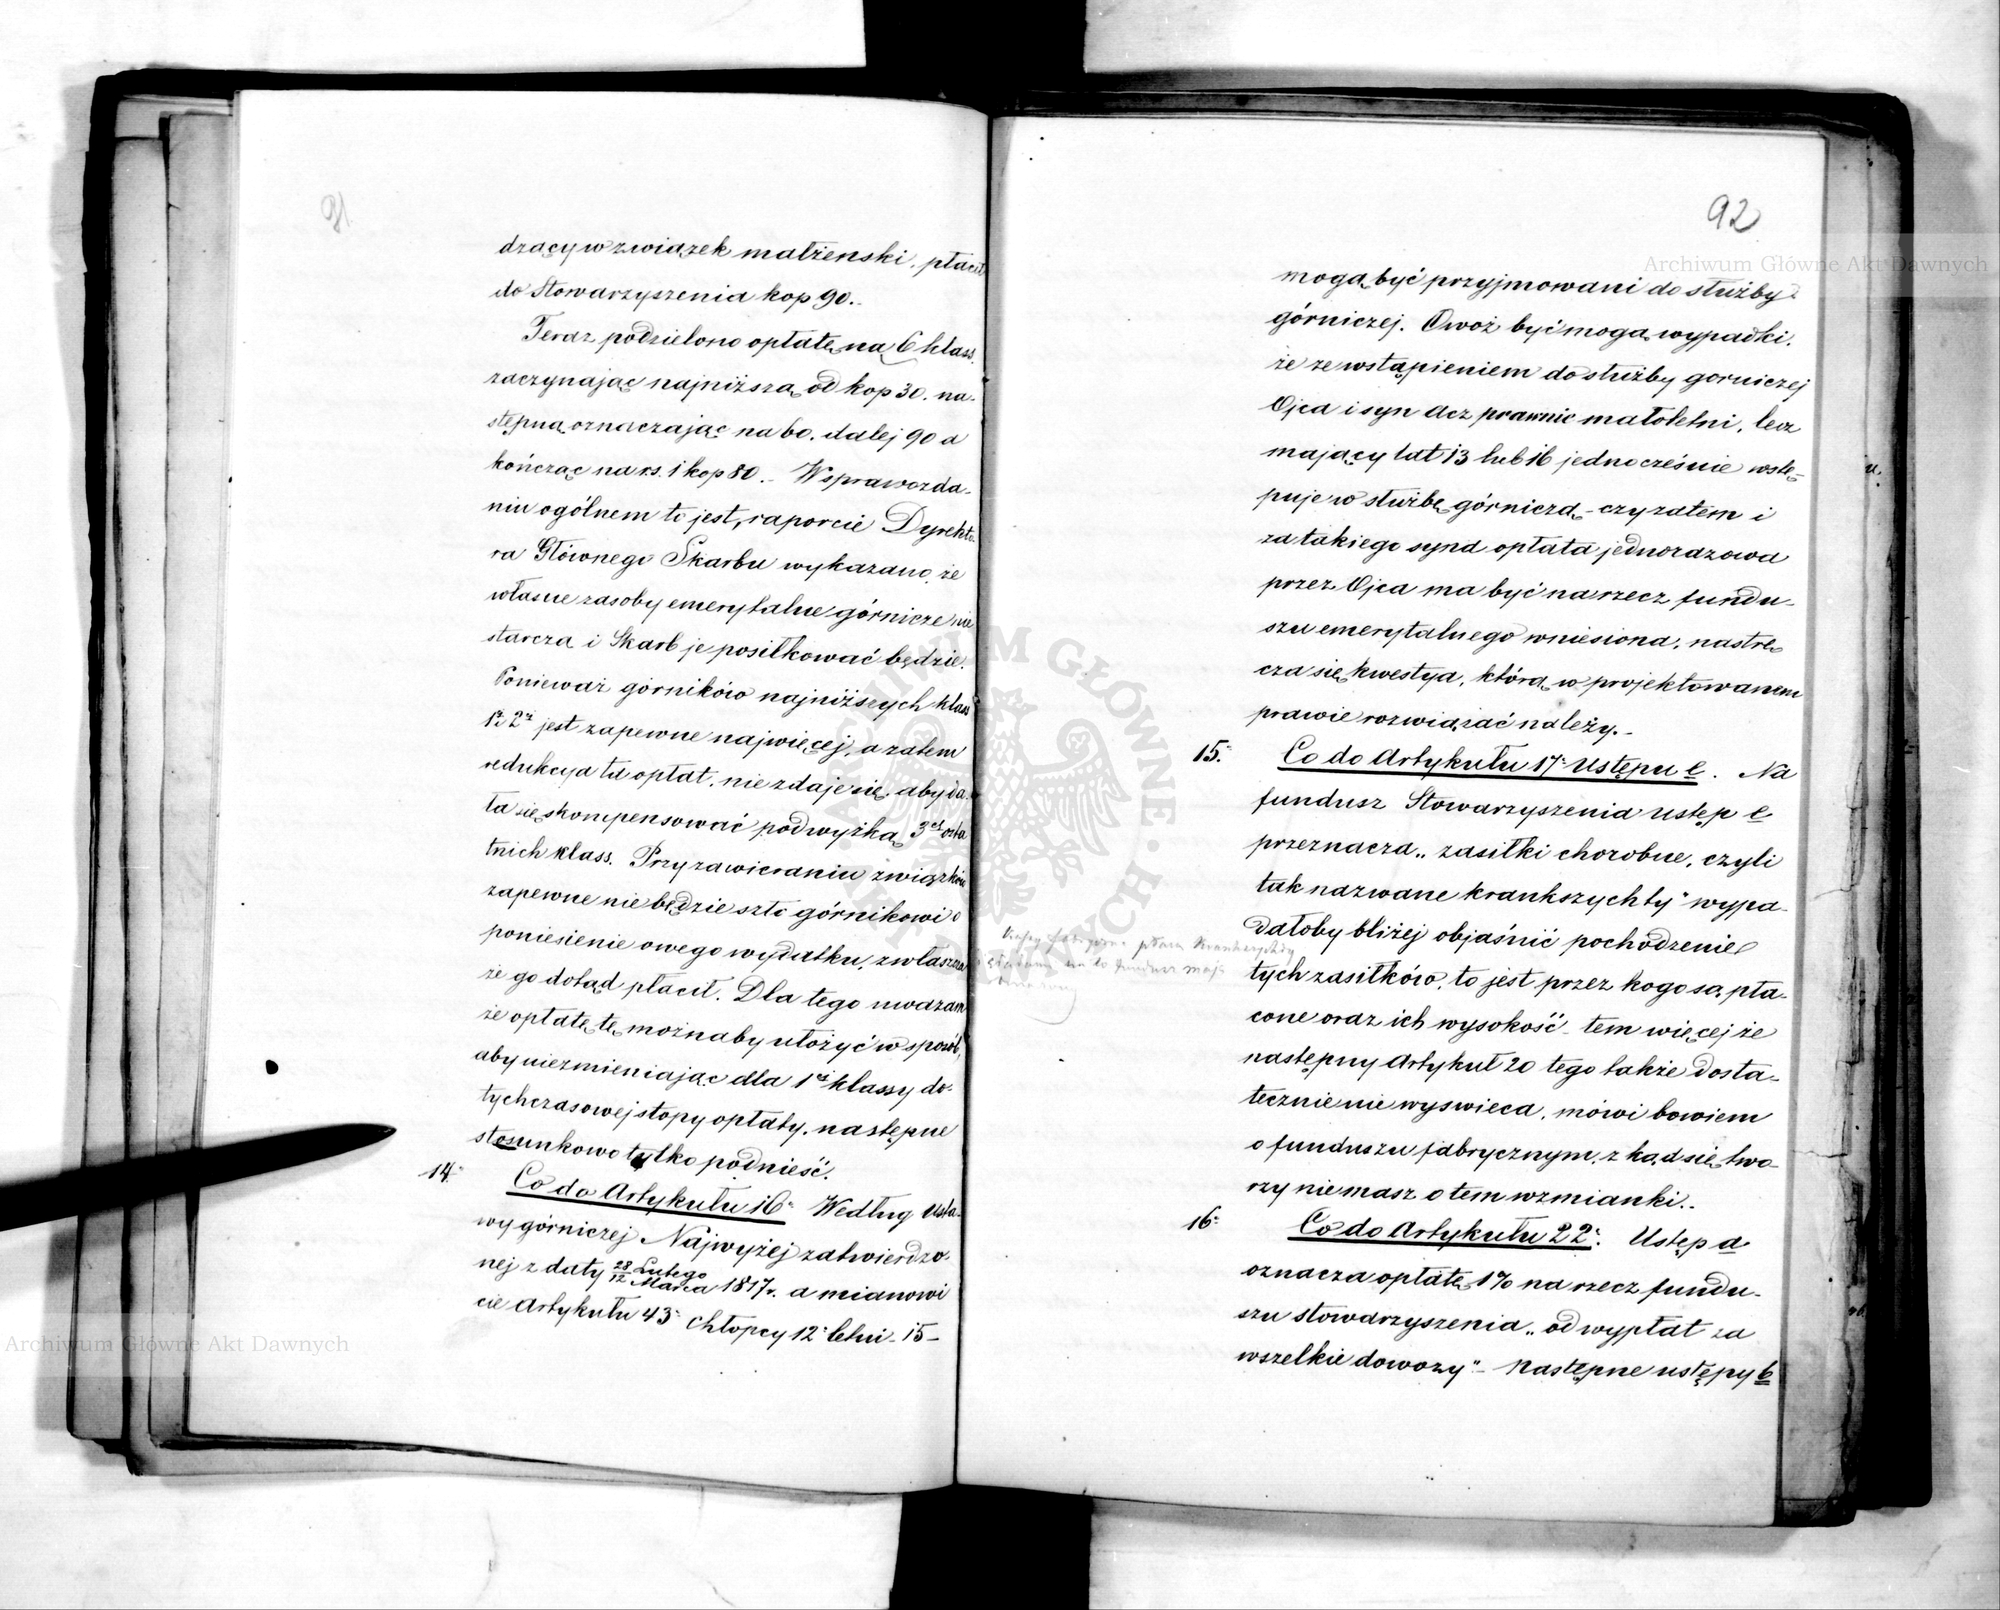 91.
dzący w związek małżenski, płacił
do Stowarzyszenia kop 90..
Teraz podzielono opłatę na 6 klass.
zaczynając najniższą od kop 30. na-
stępną oznaczając na 60. dalej 90 a
kończąc na rs. 1 kop 80.- W sprawozda-
niu ogólnem to jest, raporcie Dyrekto-
ra Głównego Skarbu wykazano, że
własne zasoby emerytalne górnicze nie
starczą i Skarb je posiłkować będzie.
Ponieważ górników najniższych klass
1ej 2ej jest zapewne najwięcej, a zatem
redukcya ta opłat, nie zdaje się, aby da-
ła się skompensować podwyżką 3ch osta
tnich klass. Przy zawieraniu związków
zapewne nie będzie szło górnikowi o
poniesienie owego wydatku, zwłaszcza
że go dotąd płacił. Dla tego uważam
że opłatę tę możnaby ułożyć w sposób,
aby niezmieniając dla 1ej klassy do-
tychczasowej stopy opłaty, następne
stosunkowo tylko podnieść.
14. Co do Artykułu 16. Według Usta-
wy górniczej Najwyżej zatwierdzo-
nej z daty 28 Lutego / 12 Marca 1817 r. a mianowi
cie Artykułu 43. chłopcy 12. letni - 15 -
92
mogą być przyjmowani do służby
górniczej. Owoż być mogą wypadki,
że ze wstąpieniem do służby gorniczej
Ojca i syn acz prawnie małoletni, lecz
mający lat 13 lub 16 jednocześnie wstę-
puje w służbę górniczą - czy zatem i
za takiego syna opłata jednorazowa
przez Ojca ma być na rzecz fundu-
szu emerytalnego wniesiona, nastrę
cza się kwestya, którą w projektowanem
prawie rozwiązać należy.-
15. Co do Artykułu 17. Ustępu e. Na
fundusz Stowarzyszenia ustęp e
przeznacza „zasiłki chorobne, czyli
tak nazwane krankszychty" wypa-
dałoby bliżej objaśnić pochodzenie
tych zasiłków, to jest przez kogo są pła-
cone oraz ich wysokość - tem więcej że
następny Artykuł 20 tego także dosta-
tecznie nie wyswieca, mówi bowiem
o funduszu fabrycznym, z kąd się two-
rzy nie masz o tem wzmianki..
16. Co do Artykułu 22. Ustęp a
oznacza opłatę 1% na rzecz fundu-
szu stowarzyszenia „od wypłat za
wszelkie dowozy" - Następne ustępy b
Archiwum Główne Akt Dawnych
Archiwum Główne Akt Dawnych
ARCHIWUM GŁÓWNE AKT DAWNYCH